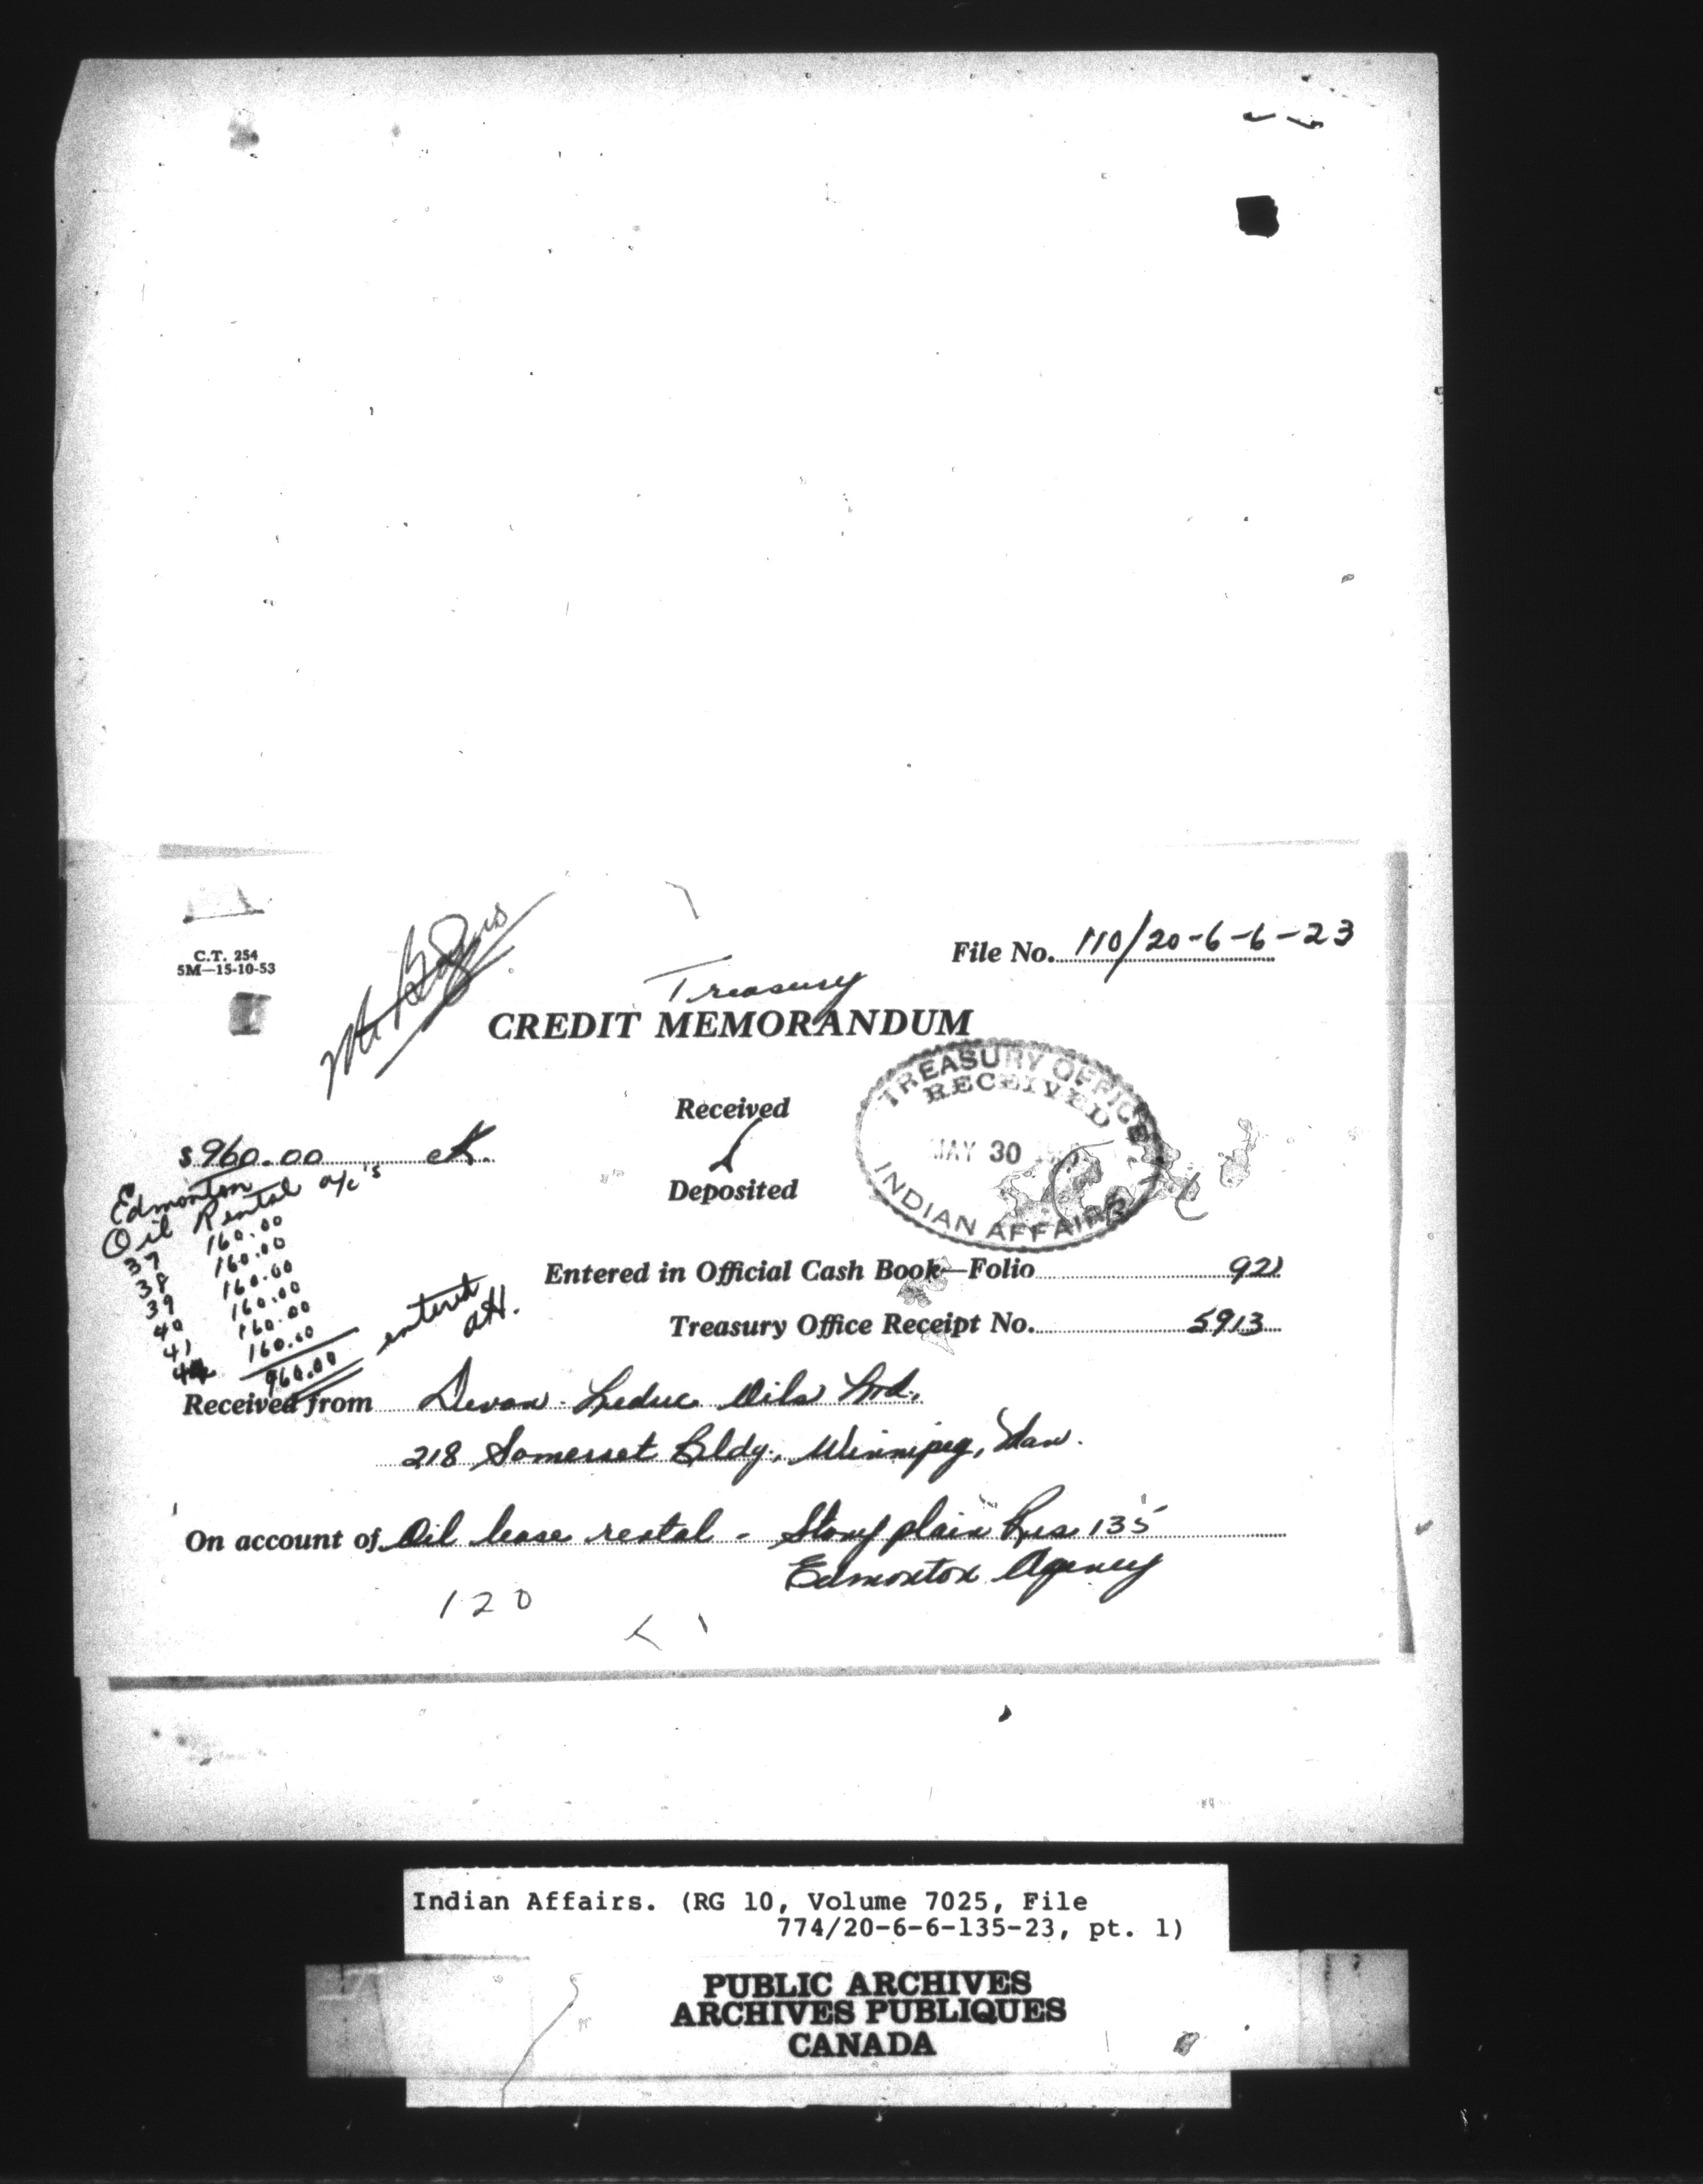 C.T. 254
5M—15-10-53
File No. 110/20-6-6-23
Treasury
CREDIT MEMORANDUM
TREASURY OFFICE
RECEIVED
MAY 30
INDIAN AFFAIRS
Received
$ 960.00
Deposited
Edmonton
Oil Rental a/c's
37 160.00
38 160.00
39 160.00
40 160.00
41 160.00
160.00
960.00
entered
Entered in Official Cash Book—Folio 921
Treasury Office Receipt No. 5913
Received from Devon Leduc Oils Ltd.,
218 Somerset Bldg., Winnipeg, Man.
On account of Oil lease rental - Stony plain Res. 135
Edmonton Agency
120
Indian Affairs. (RG 10, Volume 7025, File
774/20-6-6-135-23, pt. 1)
PUBLIC ARCHIVES
ARCHIVES PUBLIQUES
CANADA